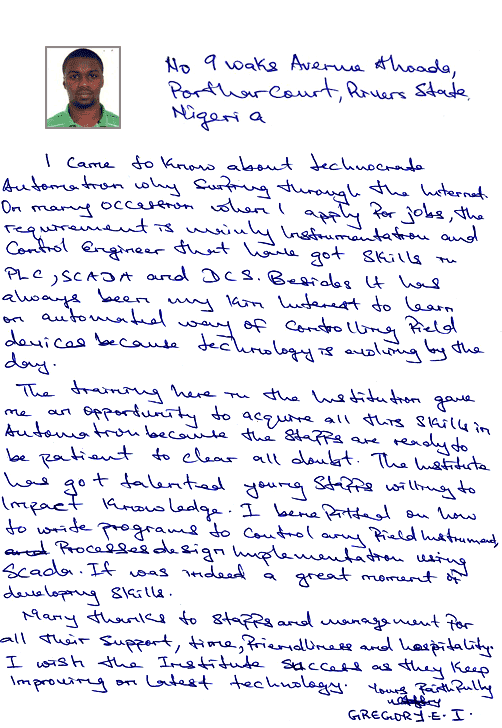 No 9 waks Avenue Ahoada,
Portharcourt, Rivers State,
Nigeria
I came to know about technocrate
Automation why surfing through the Internet.
On many occasion when I apply for jobs, the
requirement is mainly Instrumentation and
Control Engineer that have got skills in
PLC, SCADA and DCS. Besides It has
always been my kin interest to learn
on automated way of controlling field
devices because technology is evolving by the
day.
The training here in the Institution gave
me an opportunity to acquire all this skills in
Automation because the staffs are ready to
be patient to clear all doubt. The Institute
has got talented young staffs willing to
Impact knowledge. I benefitted on how
to write programs to control any field Instrument,
and Processes design Implementation using
Scada. It was indeed a great moment of
developing skills.
Many thanks to staffs and management for
all their support, time, friendliness and hospitality.
I wish the Institute success as they keep
Improving on latest technology. Yours faithfully
GREGORY. E. I.